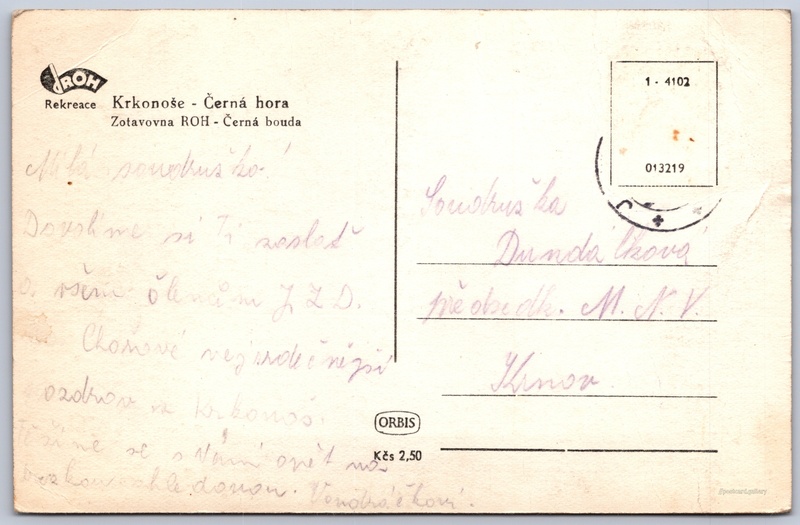 ROH
Rekreace
Krkonoše - Černá hora
Zotavovna ROH - Černá bouda
1 - 4102
013219
Milá soudružko!
Dovolíme si Ti zaslat
a všem členům J.Z.D.
nejsrdečnější
ozdrav z Krkonoš.
Těšíme se s Vámi opět na
shledanou. Vondráčkovi.
Soudružka
Dundálková
předsedk. M. N. V.
Krnov.
ORBIS
Kčs 2,50